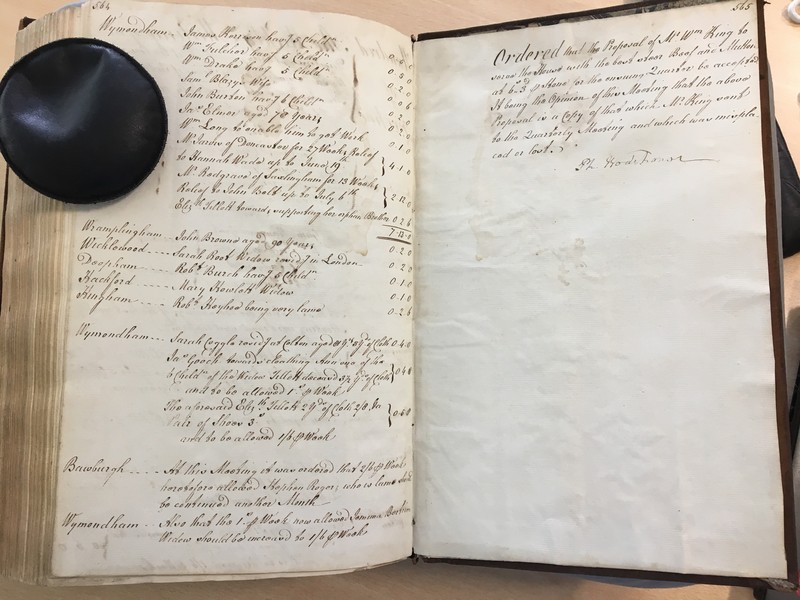 564
Wymondham - James Harrison hav.g 3 Child.n
W.m Fulcher hav.g 6 Child.n
W.m Drake hav.g 5 Child.n
Sam.l Blazy's Wife
John Burton hav.g 6 Child.n 0 . 0 . 6
Ja.s Elmer aged 78 Years 0 . 2 . 0
W.m Long to enable him to get Work
M.r Jarvis of Doncaster for 27 Weeks Relief
to Hannah Wade up to June 19.th } 4 . 1 . 0
M.r Redgrave of Saxlingham for 13 Weeks
Relief to John Bolt up to July 6.th } 2 . 12 . 0
Eliz.th Tillett towards supporting her orphan Brother 0 . 2 . 6
Wramplingham - John Browne aged 90 Years 0 . 2 . 0
Wicklewood - Sarah Root Widow resid.g in London 0 . 2 . 0
Deopham - Rob.t Burch hav.g 6 Child.n 0 . 1 . 0
Hackford - Mary Howlett Widow 0 . 1 . 0
Kingham - Rob.t Hoylea being very lame 0 . 2 . 6
Wymondham - Sarah Coggle resid.g at Colton aged of Cloth 0 . 4 . 0
Ja.s Gooch towards cloathing Ann one of the
6 Child.n of the Widow Tillett deceased 3¾ y.ds of Cloth
and to be allowed 1.s p Week
The aforesaid Eliz.th Tillett 2 y.ds of Cloth 2/8 1 a
Pair of Shoes 3.s
and to be allowed 1/6 p Week
Bawburgh - At this Meeting it was ordered that 2/6 p Week
heretofore allowed Stephen Roger, who is lame should
be continued another Month
Wymondham - Also that the 1.s p Week now allowed Jemima
Widow should be increased to 1/6 p Week
565
Ordered that the Proposal of M.r W.m King to
serve the House with the best steer Beef and Mutton
at 6.s 3.d p Stone for the ensuing Quarter be accepted
It being the Opinion of this Meeting that the above
Proposal is a Copy of that which M.r King sent
to the Quarterly Meeting and which was mispla-
ced or lost.